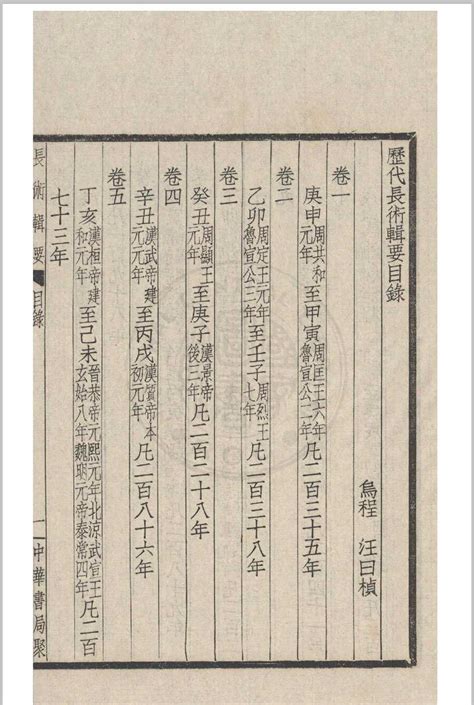 歷代長術輯要目錄
烏程　汪曰楨
卷一
庚申周共和元年至甲寅周匡王六年魯宣公二年凡二百三十五年
卷二
乙卯周定王元年魯宣公三年至壬子周烈王七年凡二百三十八年
卷三
癸丑周顯王元年至庚子漢景帝後三年凡二百二十八年
卷四
辛丑漢武帝建元元年至丙戌漢質帝本初元年凡二百八十六年
卷五
丁亥漢桓帝建和元年至己未晉恭帝元熙元年北涼武宣王玄始八年魏明元帝泰常四年凡二百
七十三年
長術輯要　目錄　一　中華書局聚